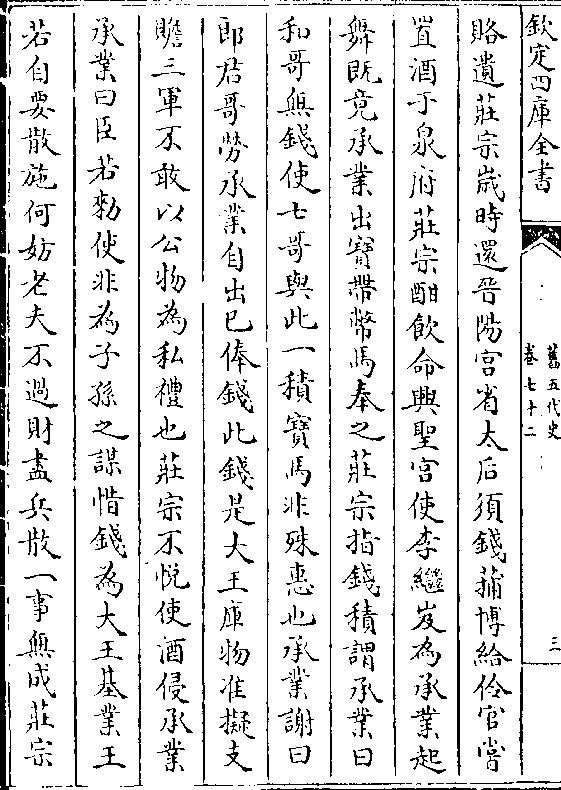 欽定四庫全書
舊五代史
卷七十二
三
賂遺莊宗嵗時還晉陽宮省太后須錢蒱博給伶官嘗
置酒于泉府莊宗酣飲命興聖宮使李繼岌為承業起
舞既竟承業出寶帶幣馬奉之莊宗指錢積謂承業曰
和哥無錢使七哥與此一積寶馬非殊惠也承業謝曰
郎君哥勞承業自出己俸錢此錢是大王庫物准擬支
贍三軍不敢以公物為私禮也莊宗不悅使酒侵承業
承業曰臣老勑使非為子孫之謀惜錢為大王基業王
若自要散施何妨老夫不過財盡兵散一事無成莊宗